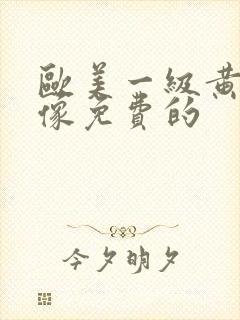 歐美一級黃
像免費的
今夕晌夕